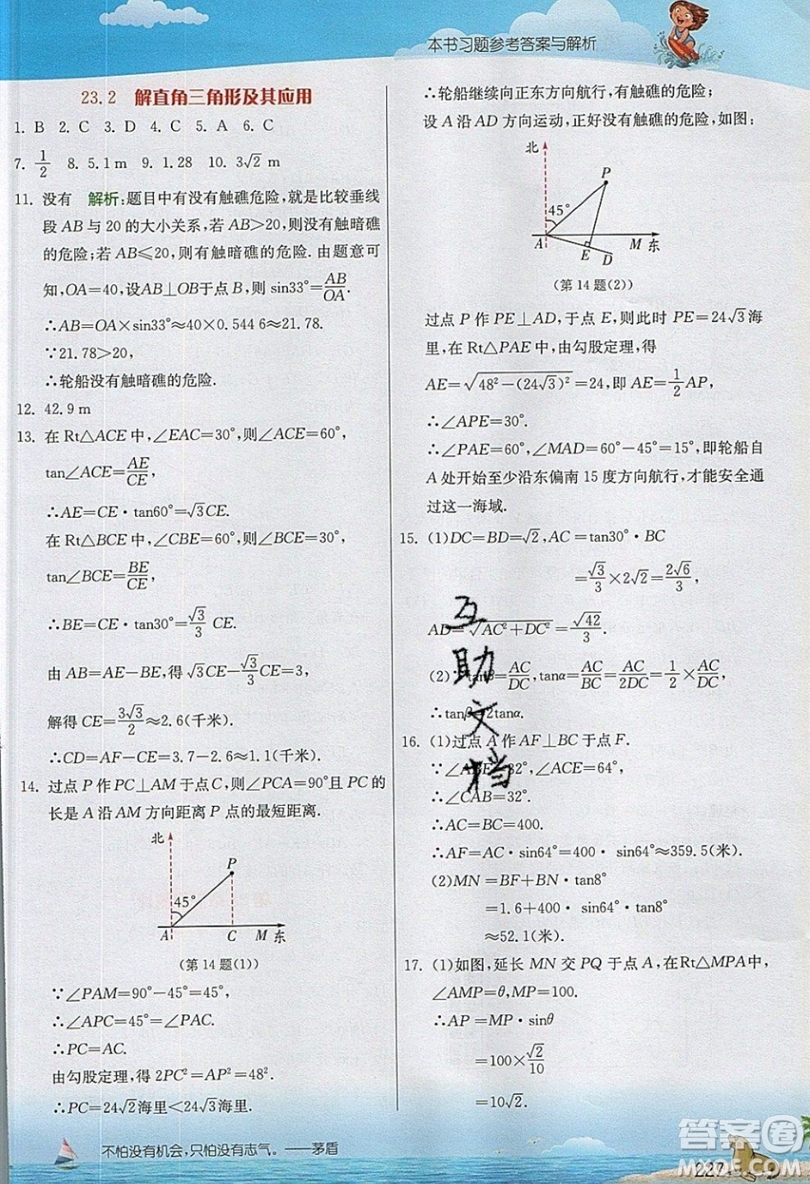 本书习题参考答案与解析
23.2 解直角三角形及其应用
1. B 2. C 3. D 4. C 5. A 6. C
7. 1/2 8. 5.1 m 9. 1.28 10. 3√2 m
11. 没有 解析:题目中有没有触礁危险,就是比较垂线
段 AB 与 20 的大小关系,若 AB>20,则没有触暗礁
的危险;若 AB≤20,则有触礁的危险. 由题意可
知,OA=40,设AB⊥OB于点 B,则 sin33°=AB/OA.
∴AB=OA×sin33°≈40×0.544 6≈21.78.
∵21.78>20,
∴轮船没有触暗礁的危险.
12. 42.9 m
13. 在 Rt△ACE 中,∠EAC=30°,则∠ACE=60°,
tan∠ACE=AE/CE,
∴AE=CE·tan60°=√3CE.
在 Rt△BCE 中,∠CBE=60°,则∠BCE=30°,
tan∠BCE=BE/CE,
∴BE=CE·tan30°=√3/3 CE.
由 AB=AE-BE,得 √3CE-√3/3CE=3,
解得 CE=3√3/2≈2.6(千米).
∴CD=AF-CE=3.7-2.6=1.1(千米).
14. 过点 P 作 PC⊥AM 于点C,则∠PCA=90°且 PC 的
长是 A 沿 AM 方向距离 P 点的最短距离.
北
P
45°
A C M 东
(第 14 题(1))
∵∠PAM=90°-45°=45°,
∴∠APC=45°=∠PAC.
∴PC=AC.
由勾股定理,得 2PC²=AP²=48².
∴PC=24√2海里<24√3海里.
∴轮船继续向正东方向航行,有触礁的危险;
设 A 沿 AD 方向运动,正好没有触礁的危险,如图:
北
P
45°
A E D M 东
(第 14 题(2))
过点 P 作 PE⊥AD,于点 E,则有此时 PE=24√3海
里,在 Rt△PAE 中,由勾股定理,得
AE=√48²-(24√3)²=24,即 AE=1/2AP,
∴∠APE=30°.
∴∠PAE=60°,∠MAD=60°-45°=15°,即轮船自
A 处开始至少沿东偏南 15 度方向航行,才能安全通
过这一海域.
15. (1)DC=BD=√2,AC=tan30°·BC
=√3/3×2√2=2√6/3,
AD=√AC²+DC²=√42/3.
(2)tanβ=AC/DC,tanα=AC/BC=AC/2DC=1/2×AC/DC,
∴tanβ=2tanα.
16. (1)过点 A 作 AF⊥BC 于点 F.
∵∠ABF=32°,∠ACE=64°,
∴∠CAB=32°.
∴AC=BC=400.
∴AF=AC·sin64°=400·sin64°≈359.5(米).
(2)MN=BF+BN·tan8°
=1.6+400·tan8°
≈52.1(米).
17. (1)如图,延长 MN 交 PQ 于点 A,在Rt△MPA中,
∠AMP=θ,MP=100,
∴AP=MP·sinθ
=100×√2/10
=10√2.
互
助
文
档
不怕没有机会,只怕没有志气。——茅盾
227
答案圈